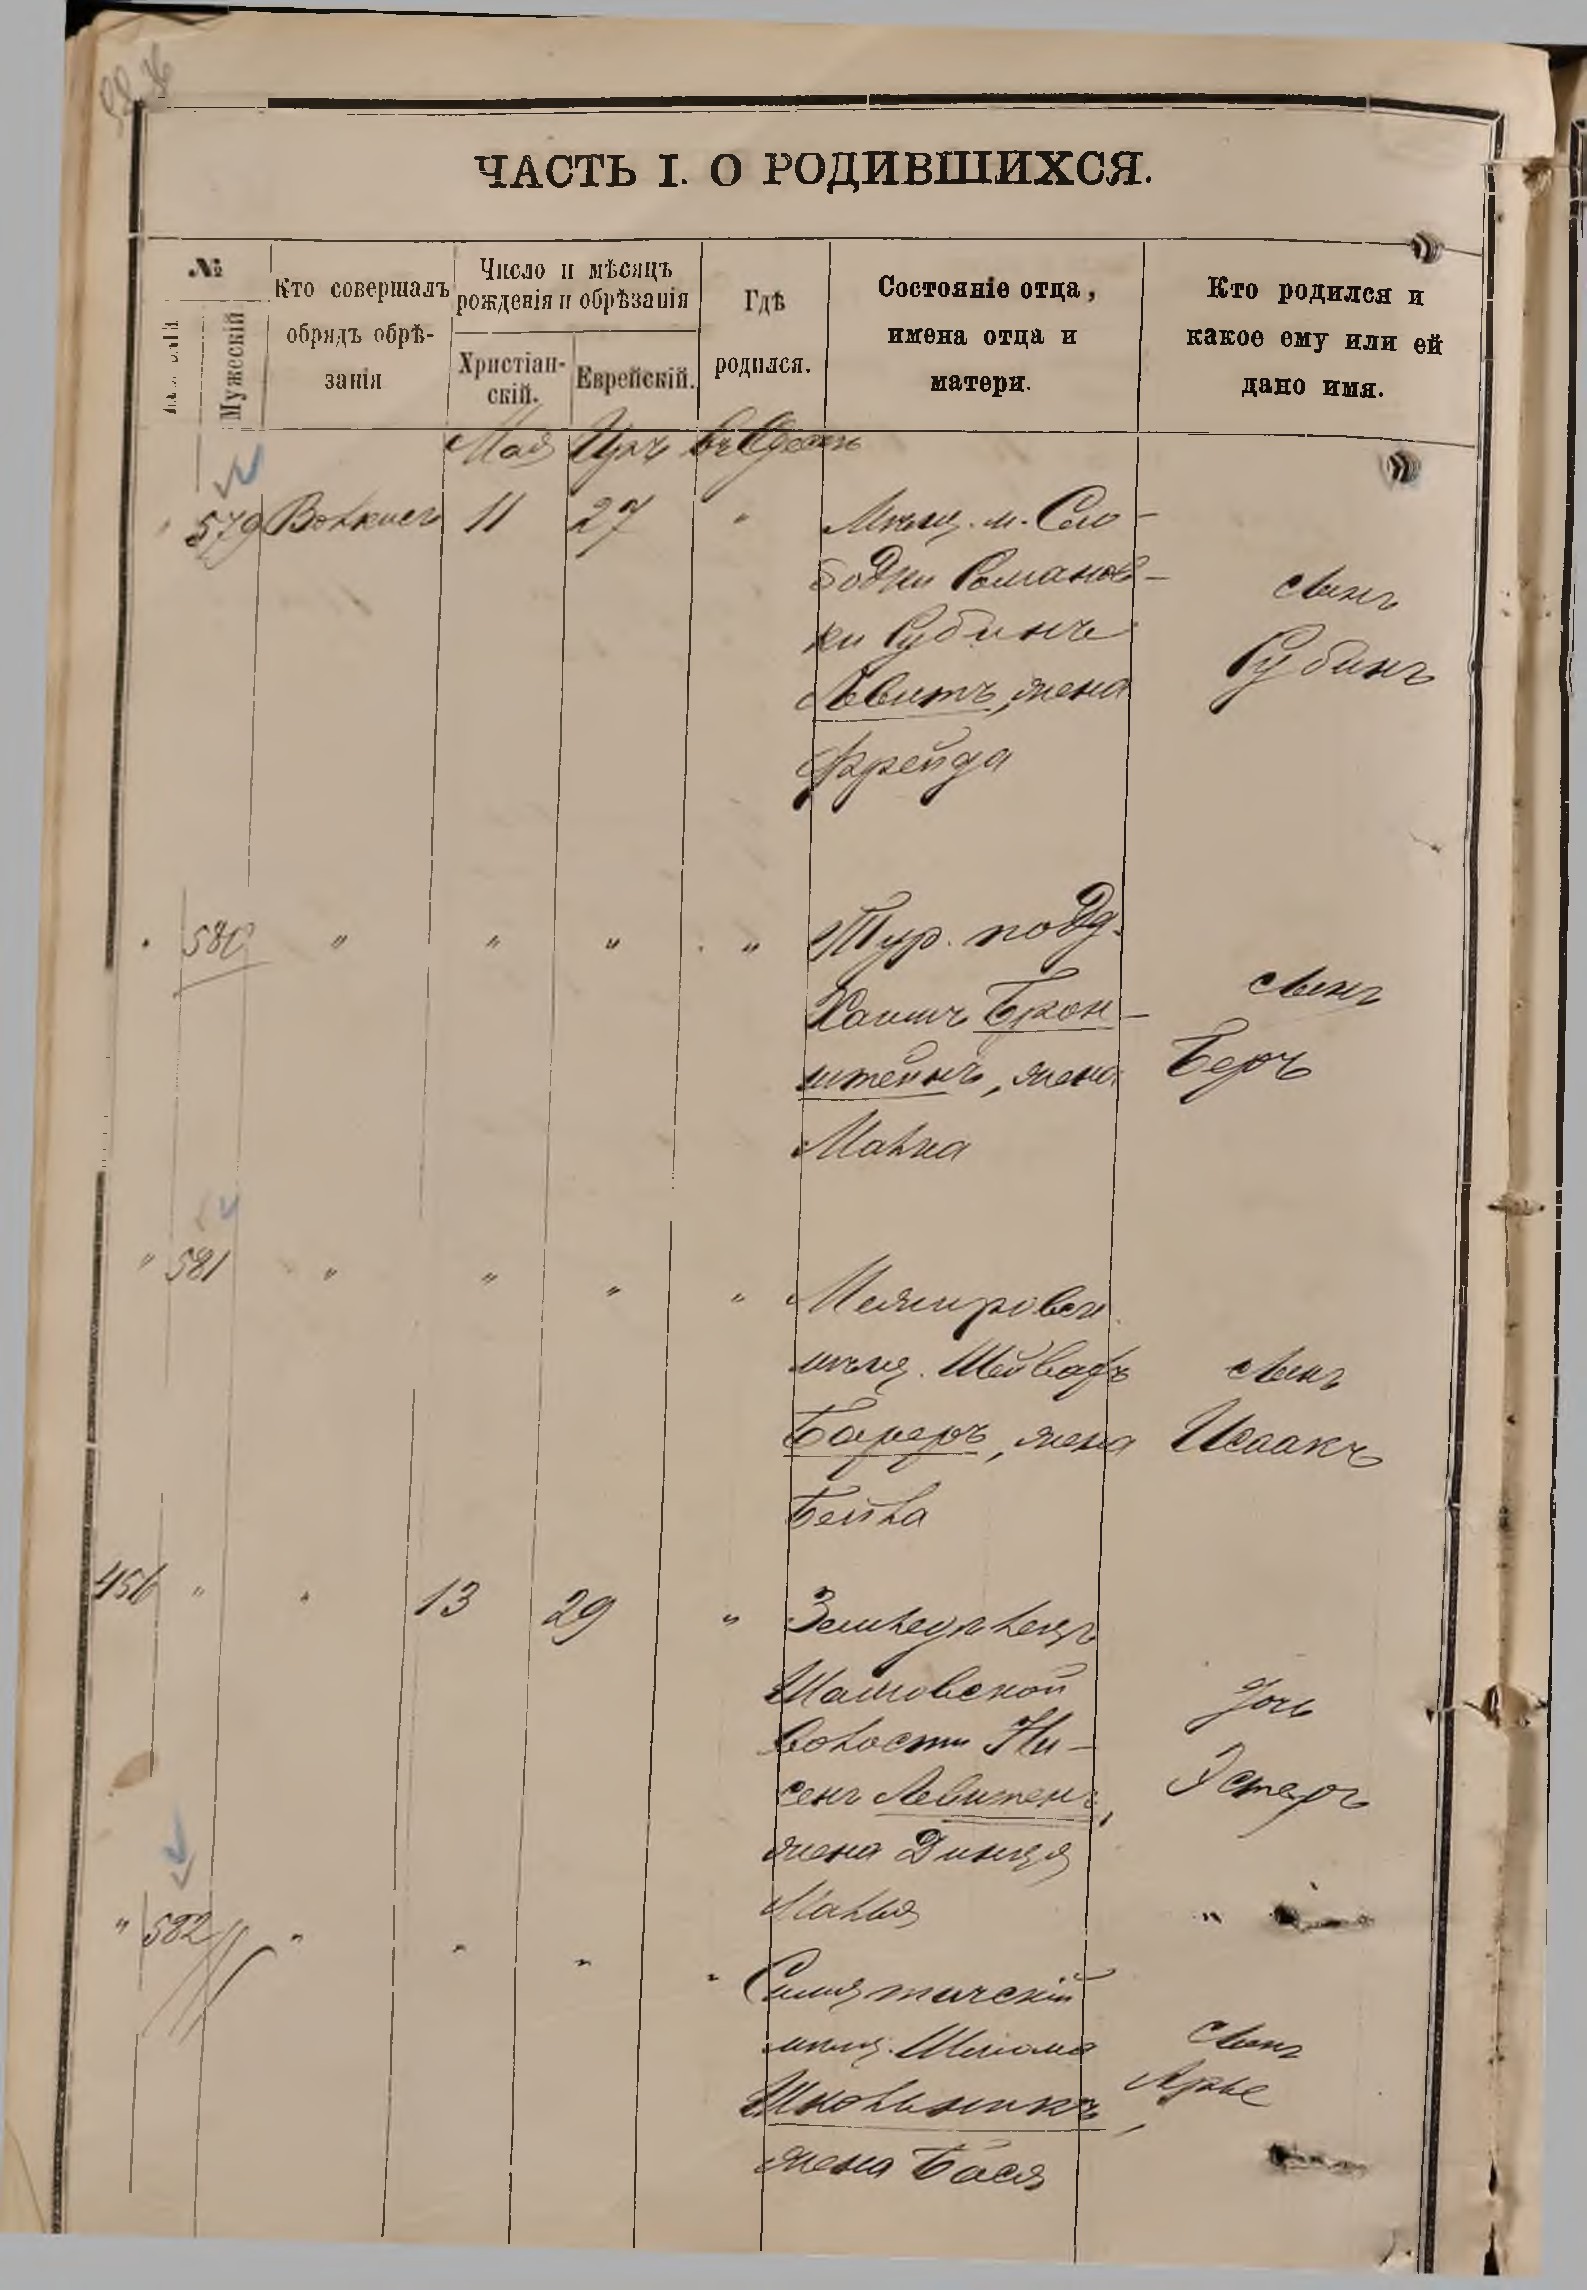 ЧАСТЬ I. О РОДИВШИХСЯ.
№
Мужескій
Кто совершалъ
обрядъ обрѣ-
занія
Число и мѣсяцъ
рожденія и обрѣзанія
Христіан-
скій.
Еврейскій.
Гдѣ
родился.
Состояніе отца,
имена отца и
матери.
Кто родился и
какое ему или ей
дано имя.
Мая Иръ въ Одессѣ
" 579 11 27 " Мѣщ. м. Сло-
бодки Романов-
ки Рубинъ
Левитъ, жена
Фрейда
сынъ
Рубинъ
" 580 " " " " Тур. подд.
Хаимъ Брон-
штейнъ, жена
Малка
сынъ
Беръ
" 581 " " " "
мѣщ.
жена
Бейла
сынъ
Исаакъ
456 " " 13 29 " Земледѣлецъ
волости Ни-
сенъ Левитенъ,
жена Двинця
Малья
дочь
Эстеръ
" 582 " " " "
мѣщ. Шлёма
Школьникъ,
жена Бася
сынъ
Арье